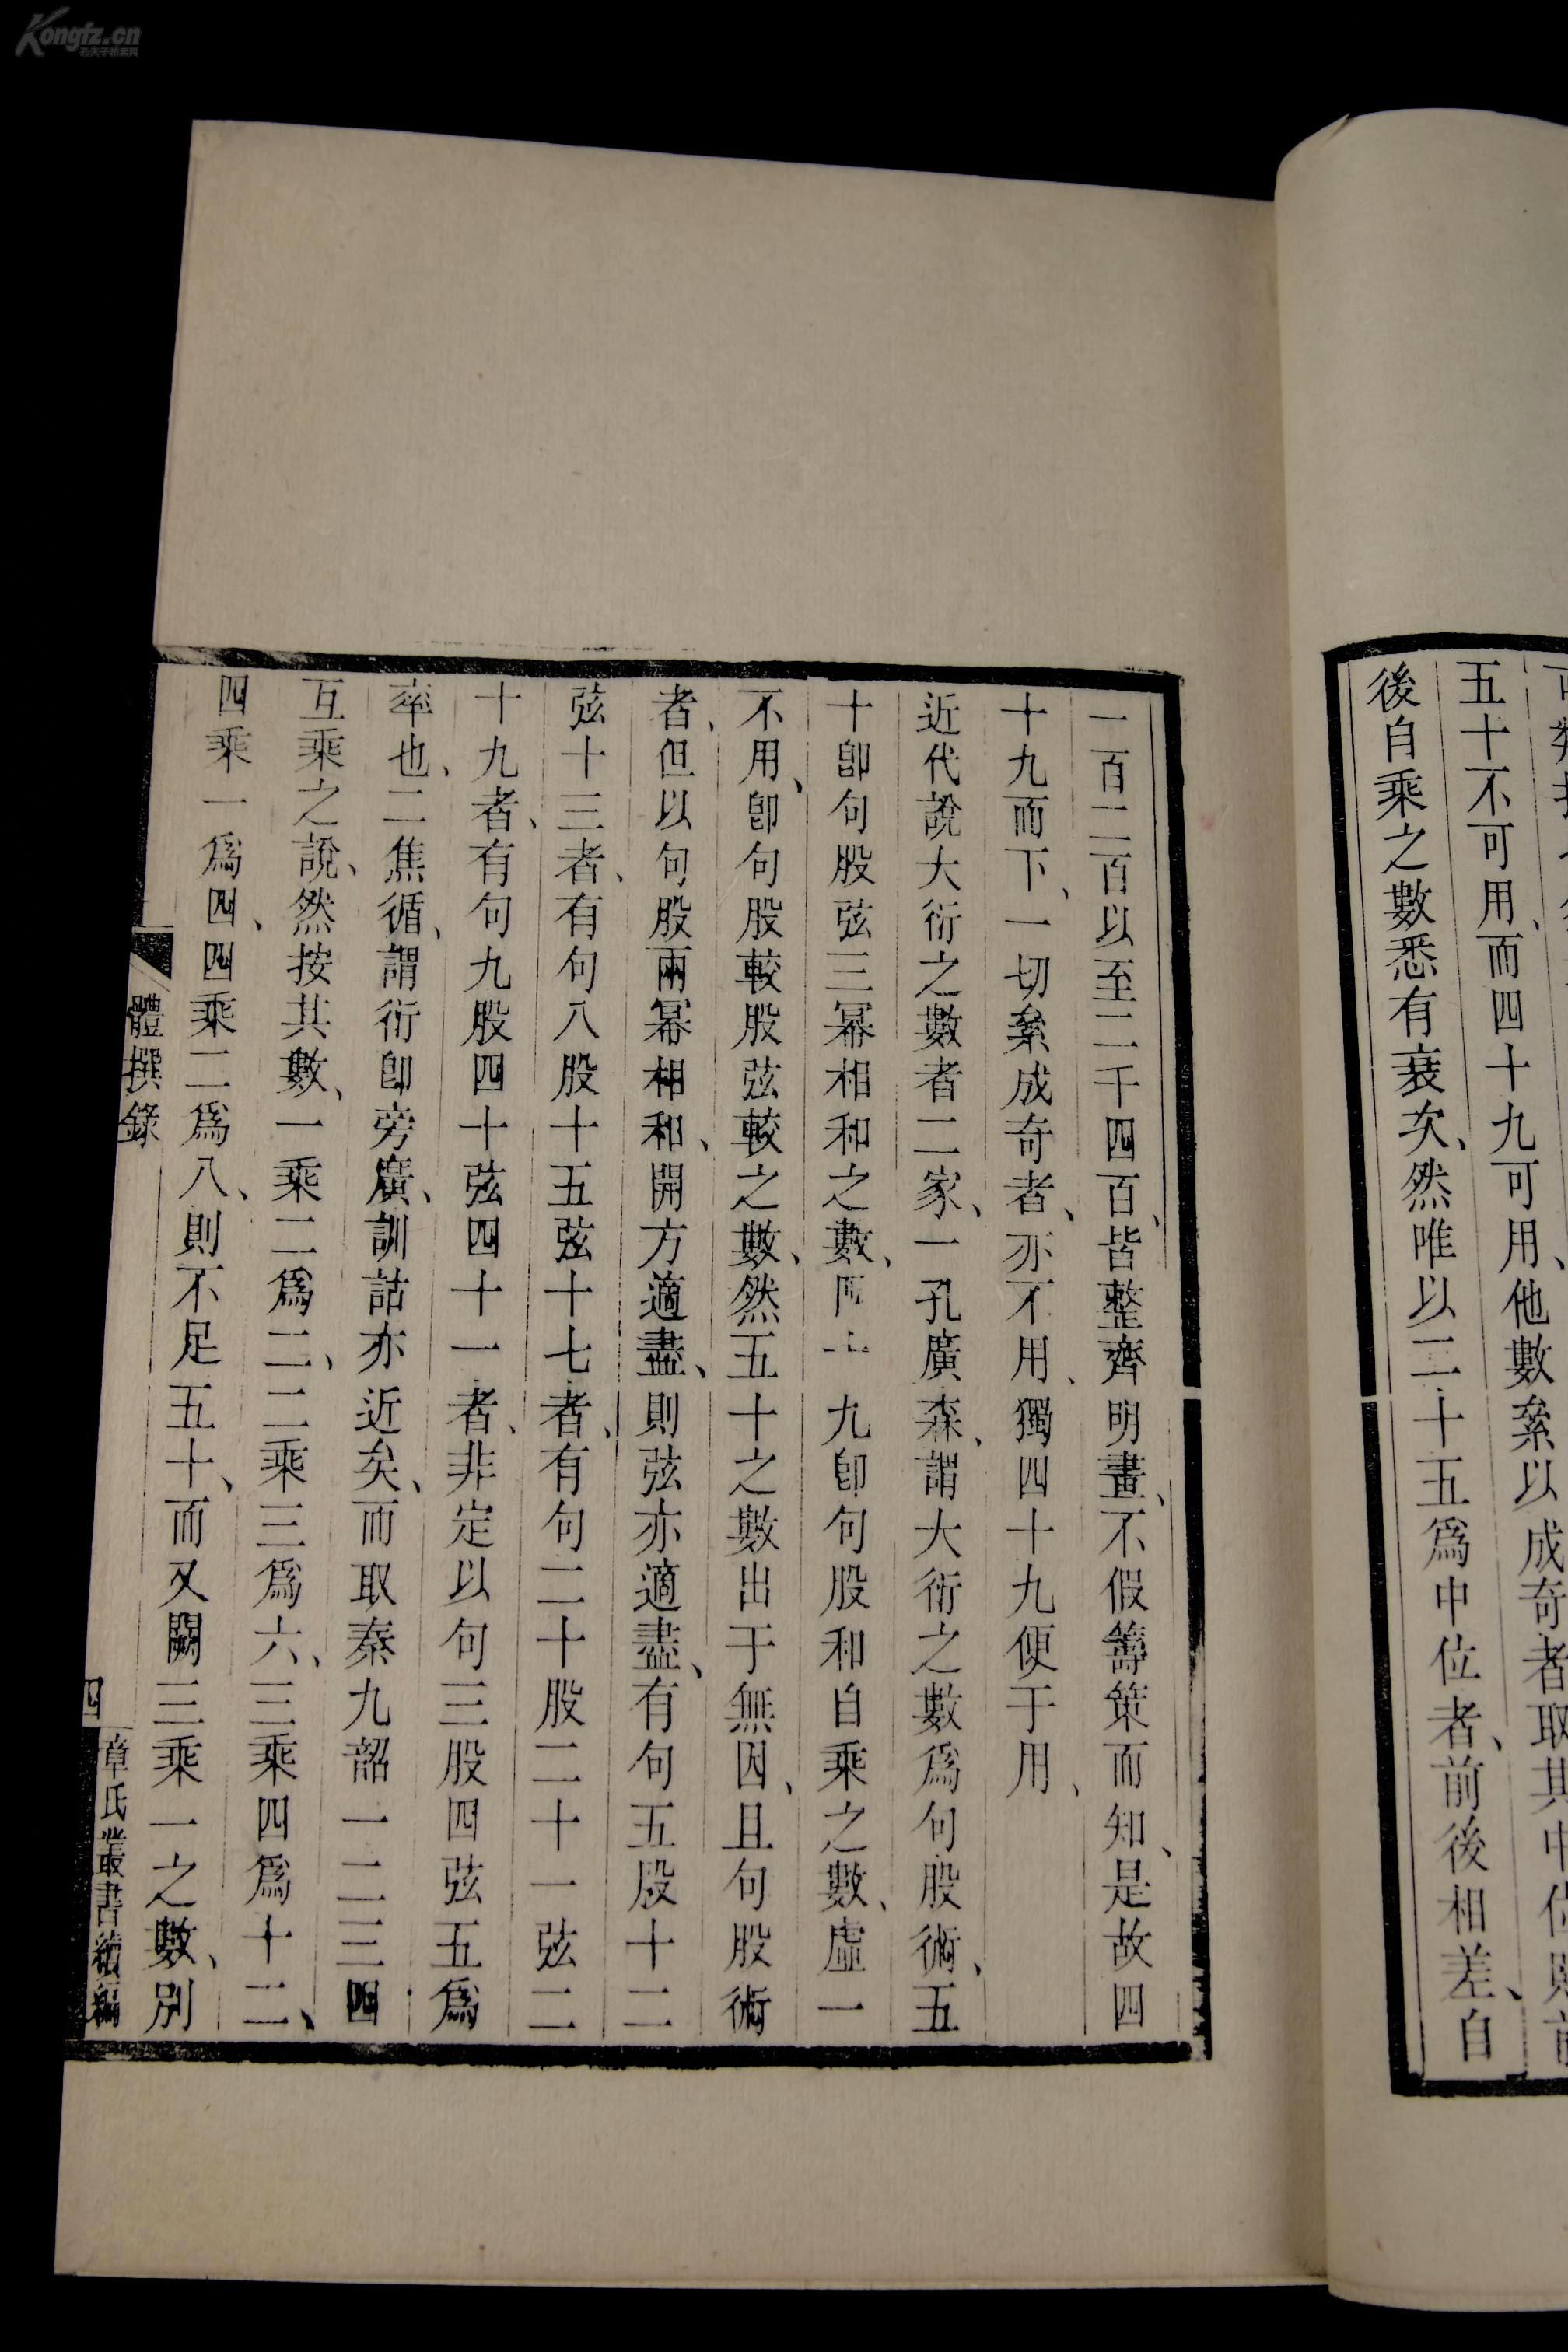 五十不可用、而四十九可用、他數絫以成奇者取其中
後自乘之數悉有衰次、然唯以二十五爲中位者、前後相差、自
一百二百以至二千四百、皆整齊明畫、不假籌策而知、是故四
十九而下、一切絫成奇者、亦不用、獨四十九便于用、
近代說大衍之數者二家、一孔廣森、謂大衍之數爲句股術、五
十卽句股弦三冪相和之數、九卽句股和自乘之數、虛一
不用、卽句股較股弦較之數、然五十之數出于無因、且句股術
者、但以句股兩冪相和、開方適盡、則弦亦適盡、有句五股十二
弦十三者、有句八股十五弦十七者、有句二十股二十一弦二
十九者、有句九股四十弦四十一者、非定以句三股四弦五爲
率也、二焦循、謂衍卽旁廣、訓詁亦近矣、而取秦九韶一二三四
互乘之說、然按其數、一乘二爲二、二乘三爲六、三乘四爲十二、
四乘一爲四、四乘二爲八、則不足五十、而又闕三乘一之數、別
體撰錄
四
章氏叢書續編
Kongfz.cn
孔夫子拍卖网